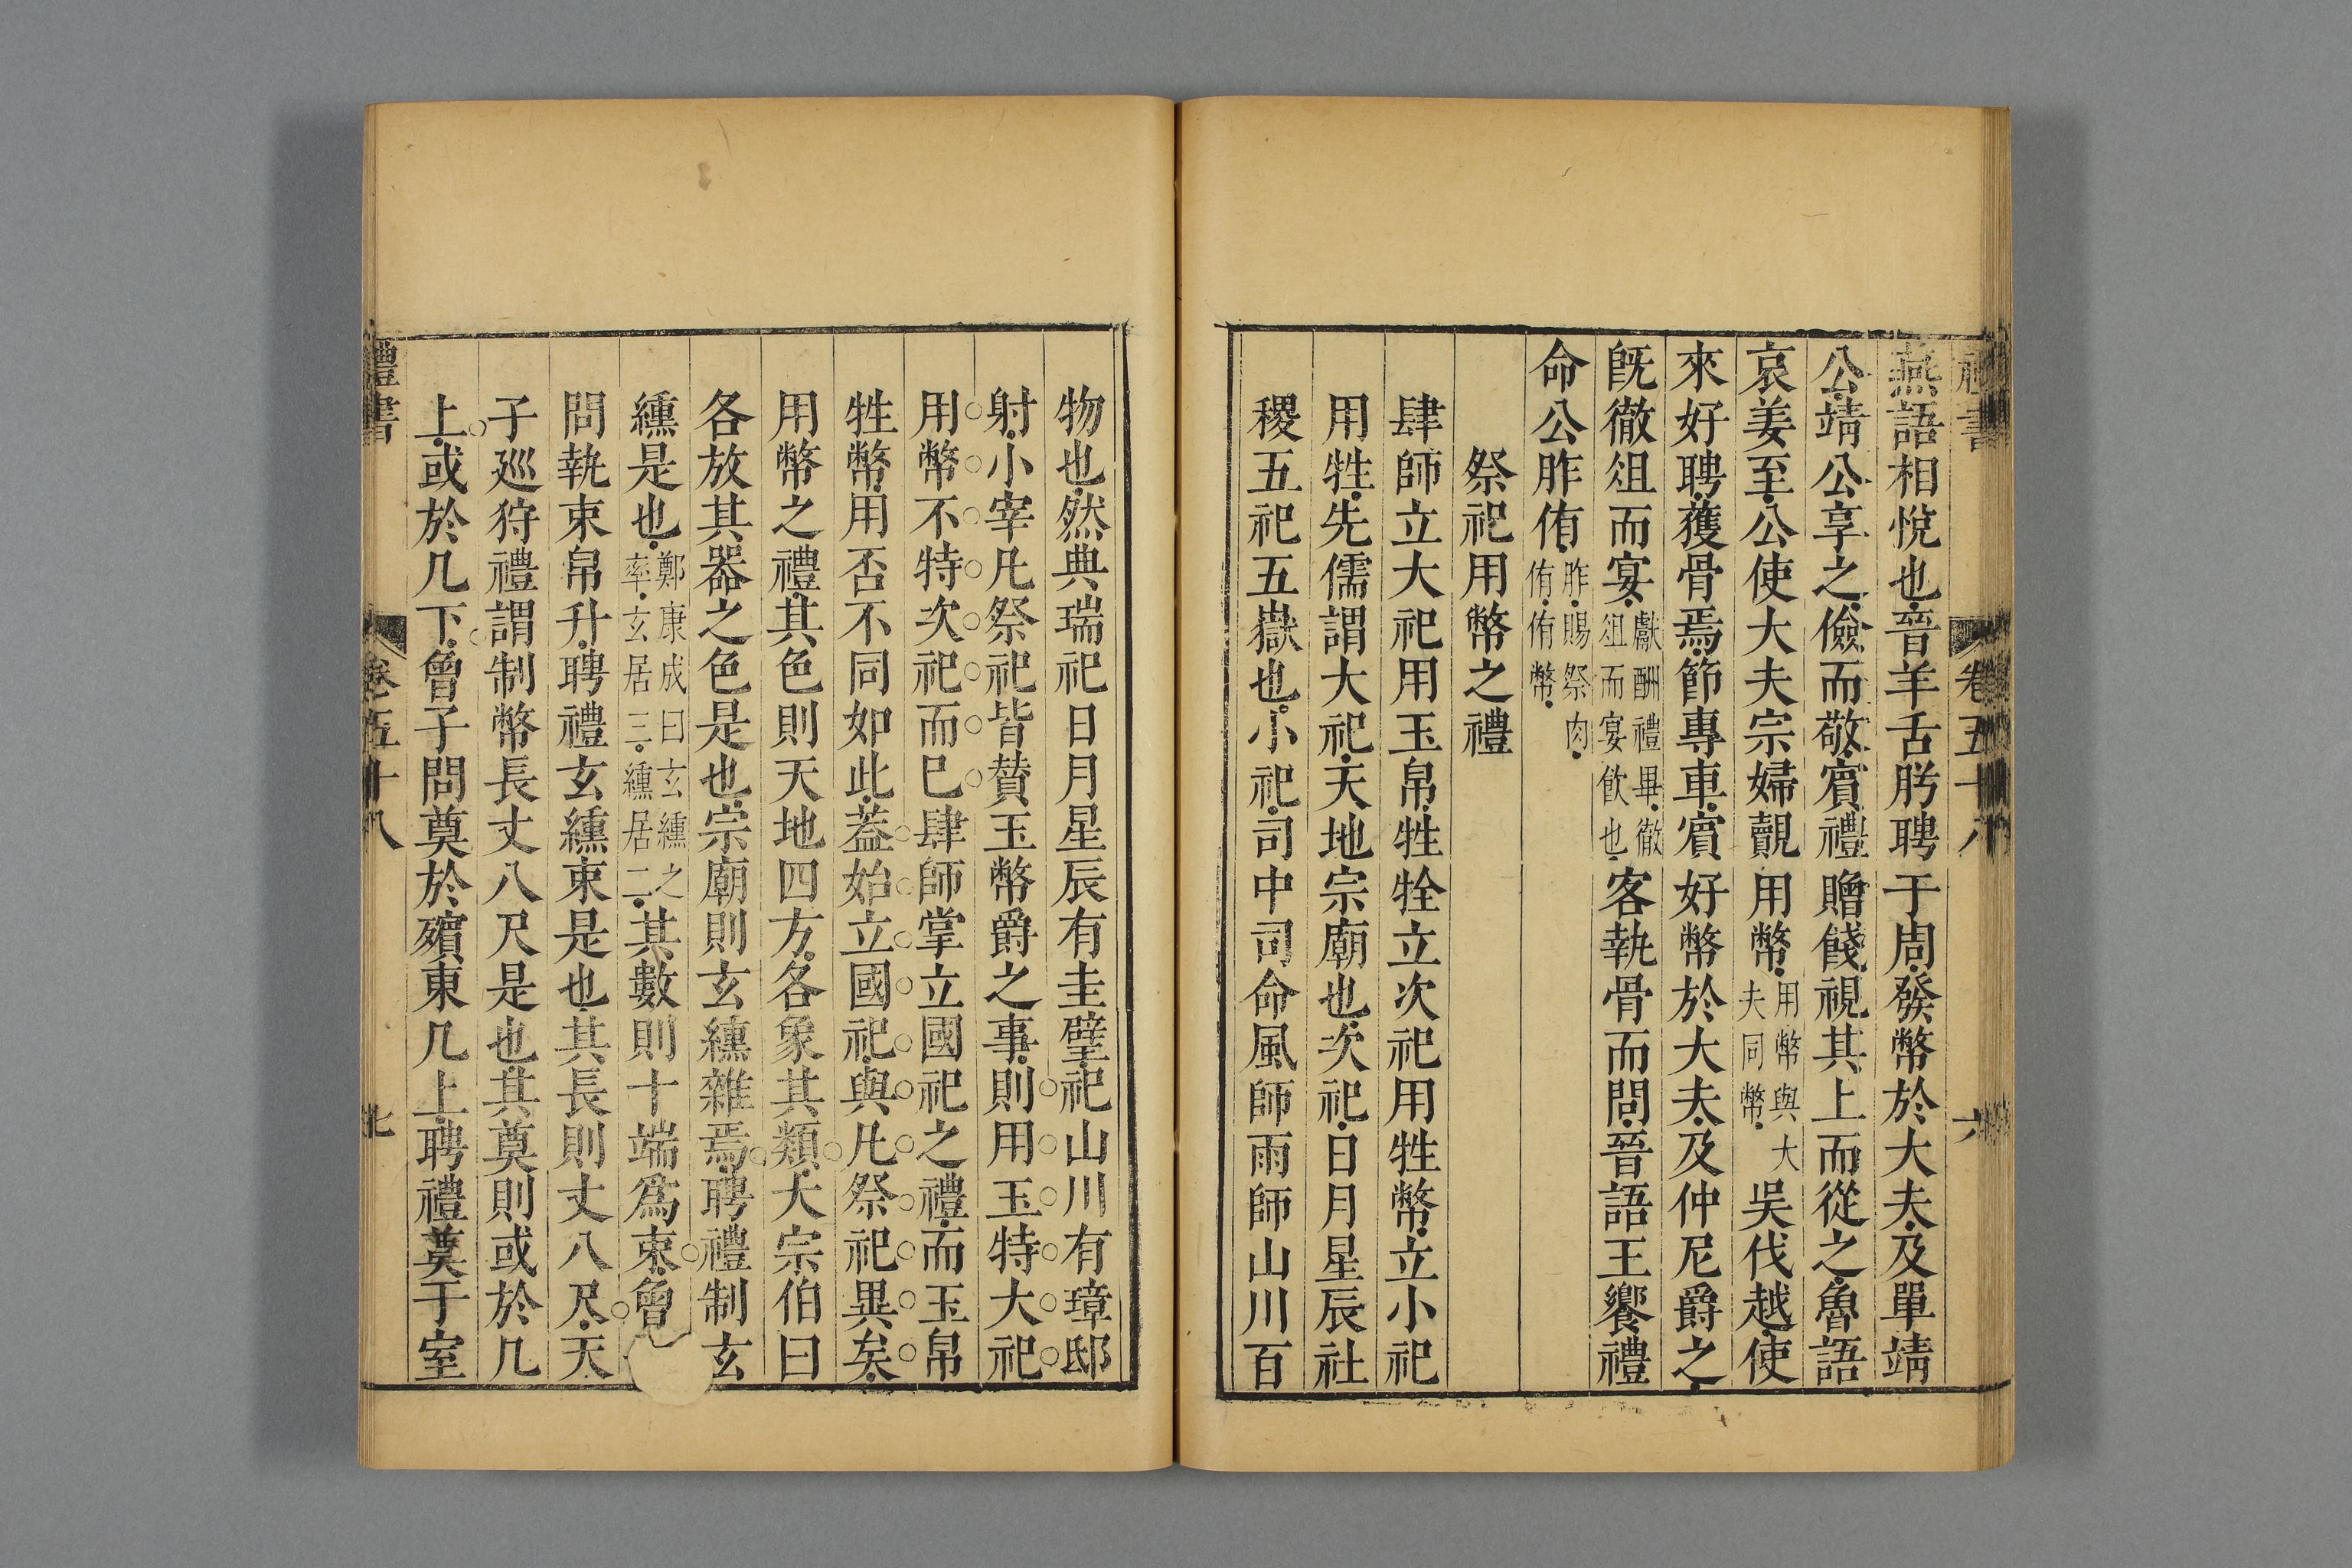 禮書 卷五十八 六
燕語相悅也晉羊舌肸聘于周發幣於大夫及單靖
公靖公享之儉而敬賓禮贈餞視其上而從之魯語
哀姜至公使大夫宗婦覿用幣用幣與大夫同幣吳伐越使
來好聘獲骨焉節專車賓好幣於大夫及仲尼爵之
旣徹俎而宴獻酬禮畢徹俎而宴飮也客執骨而問晉語王饗禮
命公胙侑胙賜祭肉侑侑幣
祭祀用幣之禮
肆師立大祀用玉帛牲牷立次祀用牲幣立小祀
用牲先儒謂大祀天地宗廟也次祀日月星辰社
稷五祀五嶽也小祀司中司命風師雨師山川百
物也然典瑞祀日月星辰有圭璧祀山川有璋邸
射小宰凡祭祀皆贊玉幣爵之事則用玉特大祀
用幣不特次祀而巳肆師掌立國祀之禮而玉帛
牲幣用否不同如此蓋始立國祀與凡祭祀異矣
用幣之禮其色則天地四方各象其類大宗伯曰
各放其器之色是也宗廟則玄纁雜焉聘禮制玄
纁是也鄭康成曰玄纁之率玄居三纁居二其數則十端爲束曾
問執束帛升聘禮玄纁束是也其長則丈八尺天
子廵狩禮謂制幣長丈八尺是也其奠則或於几
上或於几下曾子問奠於殯東几上聘禮奠于室
禮書 卷五十八 七